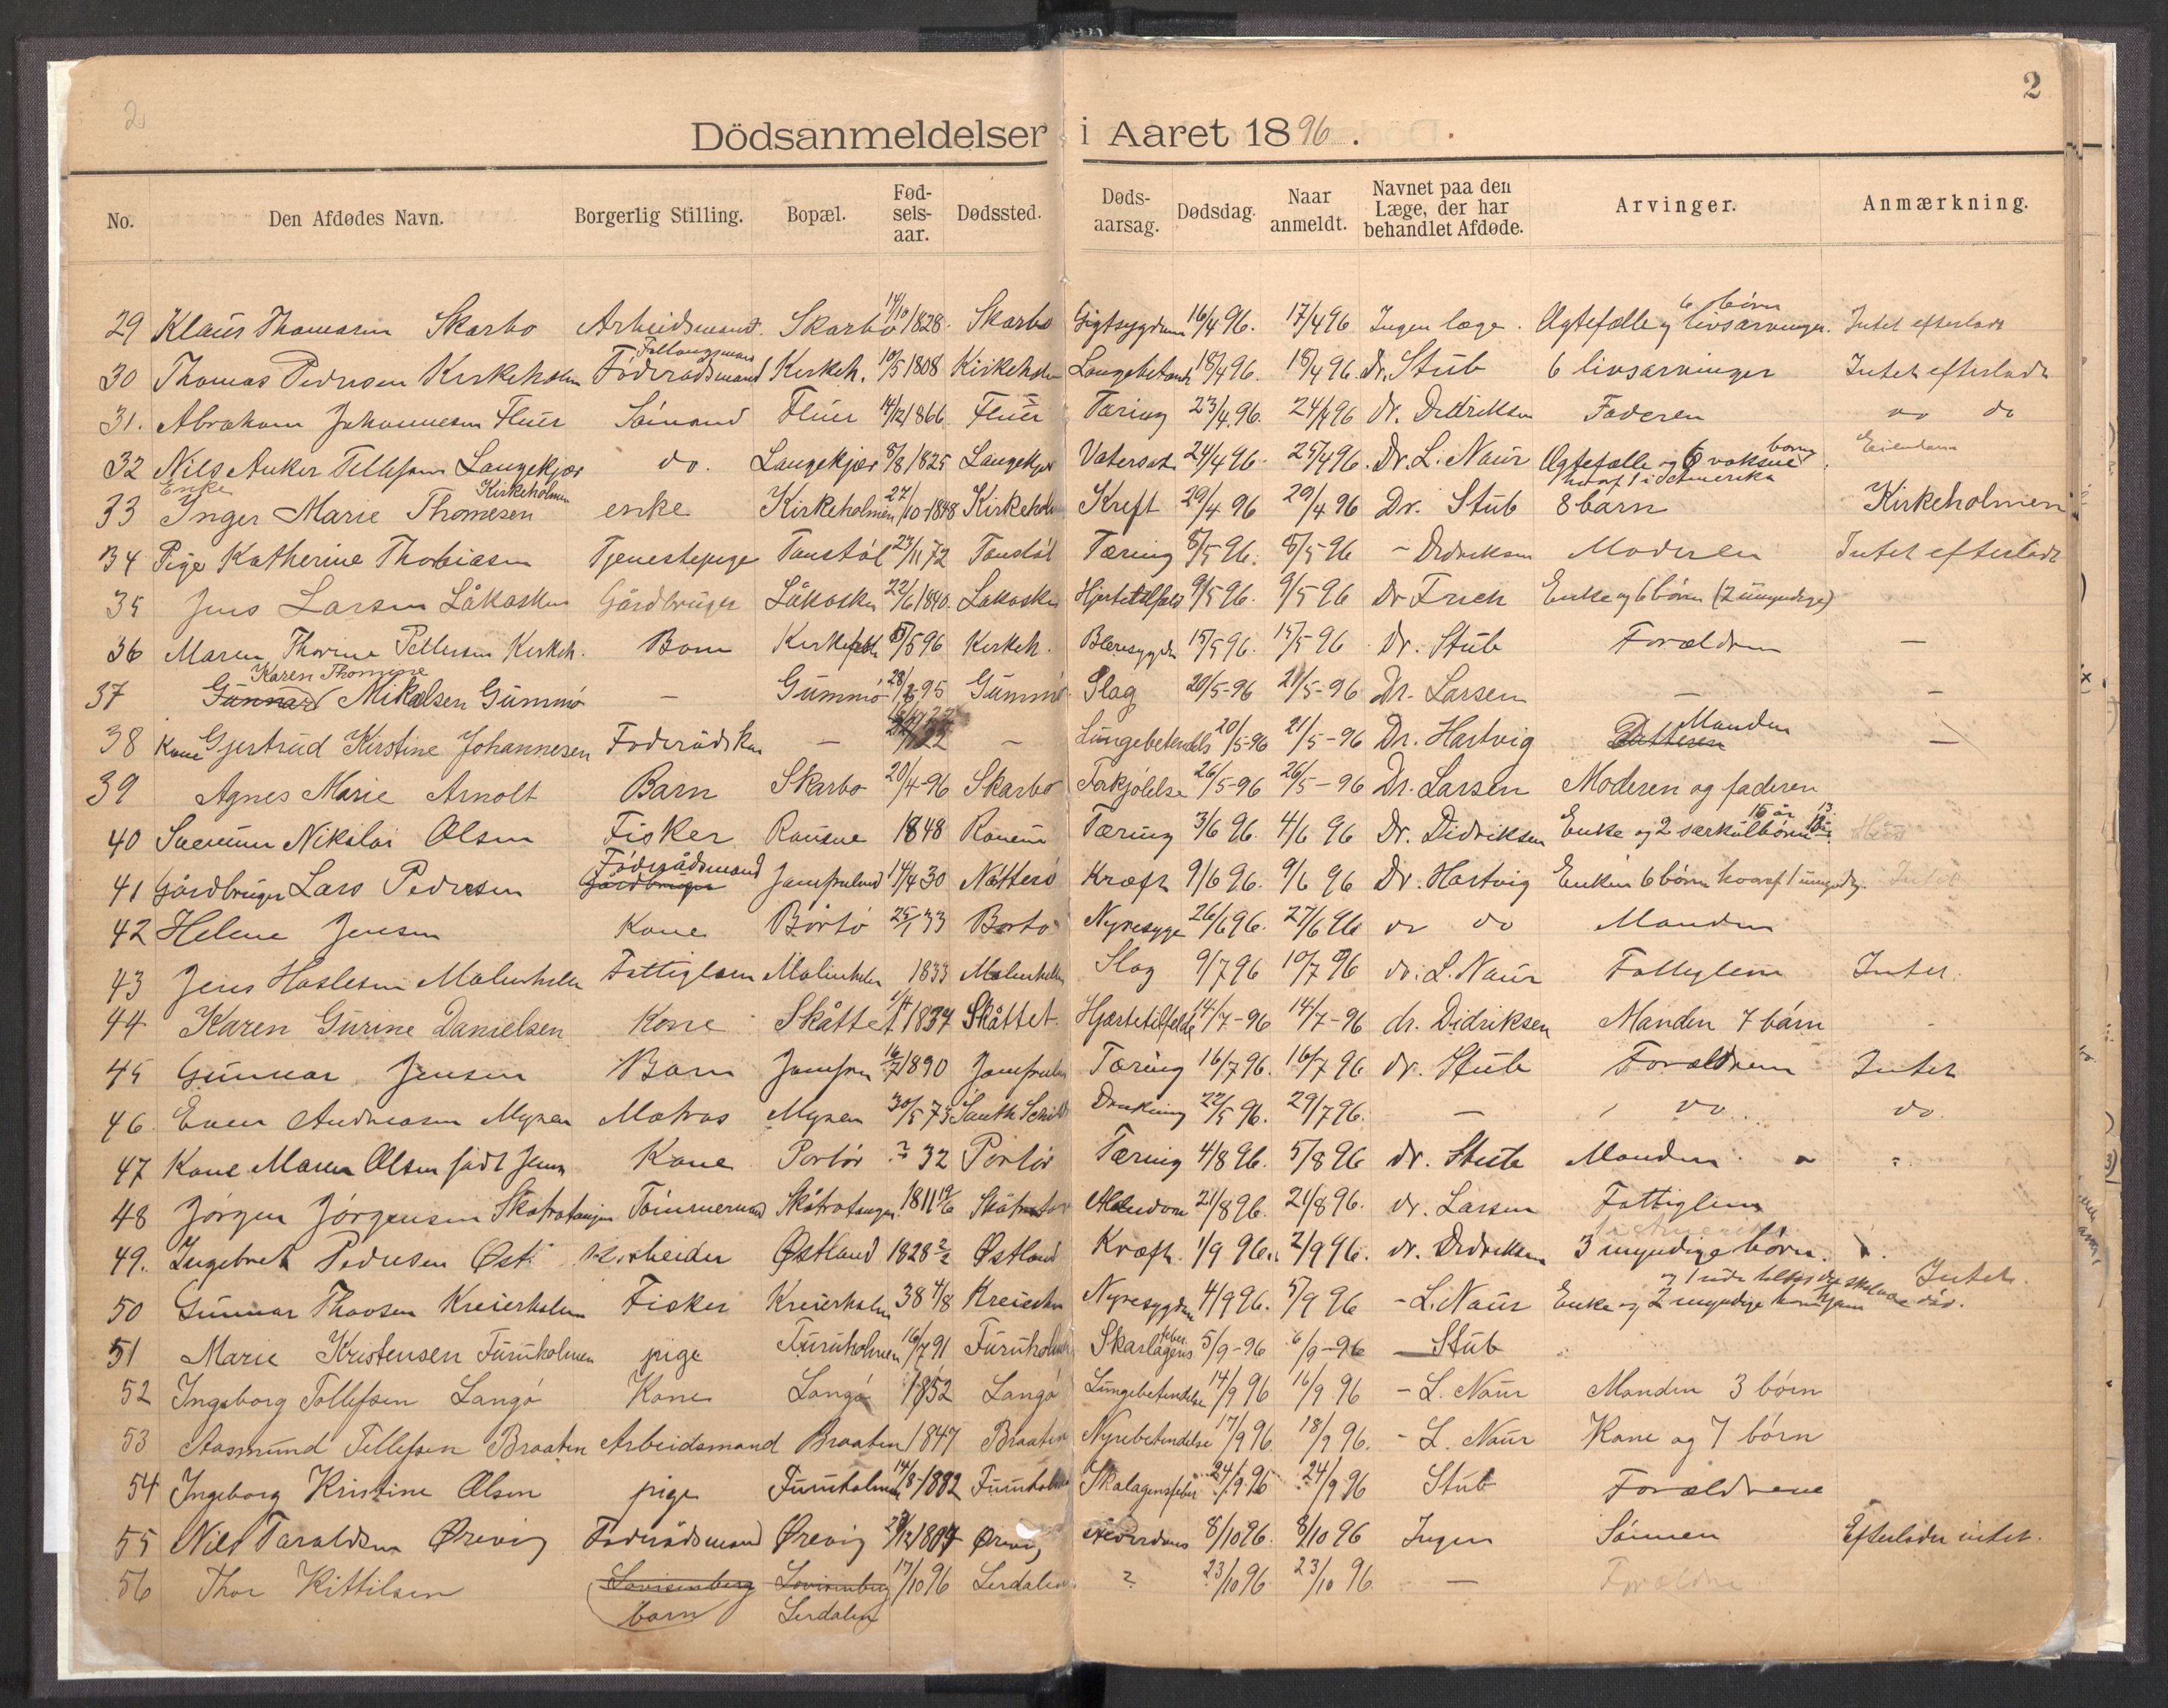 2
2
Dödsanmeldelser i Aaret 1896.
No. Den Afdødes Navn. Borgerlig Stilling. Bopæl. Fød-sels-aar. Dødssted. Døds-aarsag. Dødsdag. Naar anmeldt. Navnet paa den Læge, der har behandlet Afdøde. Arvinger. Anmærkning.
29 Klaus Thomasen Skarbo Arbeidsmand. Skarbo 14/10 1828. Skarbo Gigtsygdom 16/4 96. 17/4 96 Ingen læge. Ægtefælle og 6 børn livsarvinger. Intet efterladt
30 Thomas Pedersen Kirkeholm Föderådsmand Kirkeh. 10/5 1808 Kirkeholm Lungebetend 18/4 96. 18/4 96 Dr. Stub 6 livsarvinger Intet efterladt
31. Abraham Johannesen Fluer Sömand Fluer 14/12 1866. Fluer Tæring 23/4 96. 24/4 96 dr. Didriksen Faderen do do
32 Nils Anker Tellefsen Langekjær do. Langekjær 8/8 1825 Langekjær Vatersot 24/4 96. 25/4 96. Dr. L. Naur Ægtefælle og 6 voksne børn hvoraf 1 i Amerika Eiendom
33 Enke Inger Marie Thomesen Kirkeholmen enke Kirkeholmen 27/10-1848 Kirkeholm Kreft 29/4 96 29/4 96 Dr. Stub 8 barn Kirkeholmen
34 Pige Katherine Thobiasen Tjenestepige Tanstöl 23/11 72 Tanstöl Tæring 8/5 96. 8/5 96 - Didriksen Moderen Intet efterladt
35 Jens Larsen Låkasken Gårdbruger Låkasken 22/6 1840. Lakasken Hjertetilfæld 9/5 96. 9/5 96 Dr Frich Enke og 6 børn (2 umyndige)
36 Maren Thorine Pettersen Kirkeh. Barn Kirkeh /5 96 Kirkeh. Blæresygdom 15/5 96. 15/5 96 Dr. Stub Forældren —
37 Gunnar Karen Thomine Mikalsen Gummö — Gummö 28/8-95 Gummö. Slag 20/5-96 21/5-96 Dr. Larsen — —
38 Kone Gjertrud Kirstine Johannesen Foderådskone — — Lungebetendels 20/5-96 21/5-96 Dr. Hartvig Datteren Manden —
39 Agnes Marie Arnolt Barn Skarbo 20/4-96 Skarbo Forkjölelse 26/5-96 26/5-96 Dr. Larsen Moderen og faderen
40 Nikolai Olsen Fisker 1848 Tæring 3/6 96. 4/6 96 Dr. Didriksen Enke og 2 særkulbörn 16 år 13
41 Gårdbruger Lars Pedersen Gårdbruger Föderådsmand Jomfruland 14/4 30 Nötterö Kræft 9/6 96. 9/6 96 Dr. Hartvig Enken 6 børn hvoraf 1 umyndig. Intet
42 Helene Jensen Kone Börtö 25/1 33 Bortö Nyresyge 26/6 96. 27/6 96 do do Manden
43 Jens Haslesen Malmhelen Fattiglem Malmhelen 1833 Malmhelen Slag 9/7 96 10/7 96 dr. L. Naur Fattiglem Intet.
44 Karen Gurine Danielsen Kone Skåttet 1/4 1834 Skåttet. Hjertetilfelde 14/7-96 14/7-96 dr. Didriksen Manden 7 børn -
45 Gunnar Jensen Barn Jomfru 16/7 1890 Jomfrulan Tæring 16/7 96. 16/7 96 dr. Stub Forældrene Intet
46. Even Andreasen Myren Matros Myren 30/5 73 South Schild Drukning 22/5 96. 29/7 96. — do. do.
47 Kone Maren Olsen födt Jens Kone Portör ? 32 Portör Tæring 4/8 96. 5/8 96 dr. Stub Manden " "
48 Jörgen Jörgensen Skåtratangen Tömmermand Skåtratangen 1811 19/6 Skåtratan Alderdom 21/8 96. 21/8 96. dr. Larsen Fattiglem
49. Ingebret Pedersen Øst Arbeider Østland 1828 2/2 Østland Kræft. 1/9 96. 2/9 96. dr. Didriksen 3 myndige børn. 1 i Amerika
50 Gunnar Thovsen Kreierholm Fisker Kreierholm 38 4/8 Kreierhol Nyresygdom 4/9 96. 5/9 96 - L. Naur Enke og 2 myndige børn Intet.
51 Marie Kristensen Furuholmen pige Furuholmen 16/7 91 Furuholm Skarlagensfeber 5/9-96 6/9-96 — Stub
52 Ingeborg Tollefsen Langö Kone Langö 1852 Langö Lungebetendelse 14/9 96 16/9 96 - L. Naur Manden 3 børn
53 Aasmund Tellefsen Braaten Arbeidsmand Braaten 1847 Braaten Nyrebetendelse 17/9 96 18/9 96. - L. Naur Kone og 7 börn
54 Ingeborg Kristine Olsen pige Furuholmen 14/8-1882 Furuholm Skalagensfeber 24/9-96 24/9 96 Stub Forældrene
55 Nils Taraldsen Ørevig Foderådsmand Ørevig 1807 Ørevig Alderdoms 8/10 96. 8/10 96 Ingen Sönnen Efterlader intet.
56 Thor Kittilsen Lovisenberg barn Lovisenberg Lerdalen 17/10 96 Lerdalen ? 23/10 96 23/10 96. — Forældre